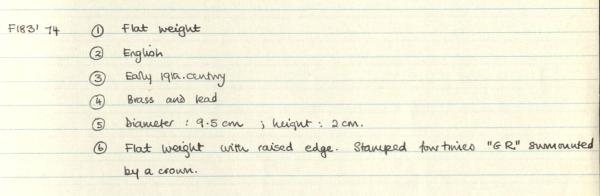 F1831 74 ① Flat weight
② English
③ Early 19th. century
④ Brass and lead
⑤ Diameter : 9.5 cm ; height : 2 cm.
⑥ Flat weight with raised edge. Stamped four times "GR" surmounted
by a crown.